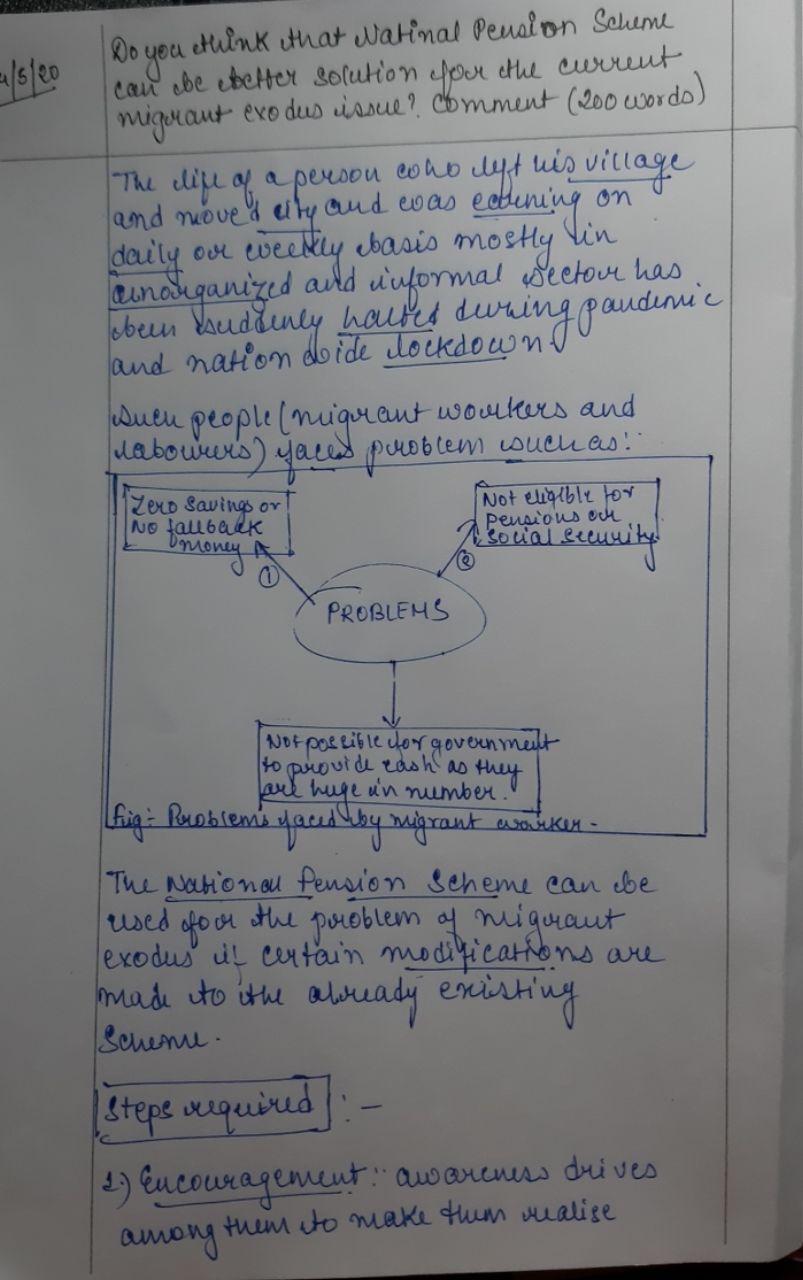 4/5/20
Do you think that Natinal Pension Scheme
can be better solution for the current
migrant exodus issue? Comment (200 words)
The life of a person who left his village
and moved city and was earning on
daily or weekly basis mostly in
unorganized and informal sector has
been suddenly halted during pandemic
and nation wide lockdown
Such people (migrant workers and
labourers) faces problem such as:
Zero Savings or
No fallback
money
①
Not eligible for
pensions or
social security
②
PROBLEMS
Not possible for government
to provide cash as they
are huge in number.
Fig:- Problems faced by migrant worker -
The National Pension Scheme can be
used for the problem of migrant
exodus if certain modifications are
made to the already existing
Scheme.
Steps required :-
1.) Encouragement: awareness drives
among them to make them realise